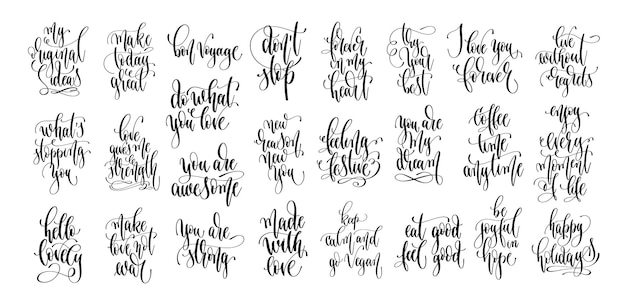 my
original
ideas
make
today
great
bon voyage
don't
stop
forever
in my
heart
try
your
best
I love you
forever
live
without
regrets
do what
you love
what's
stopping
you
love
gives me
strength
you are
awesome
new
season,
new
you
feeling
festive
you are
my
dream
coffee
time
anytime
enjoy
every
moment
of life
hello
lovely
make
love not
war
you are
strong
made
with
love
keep
calm and
go vegan
eat good
feel good
be
joyful
in
hope
happy
holidays